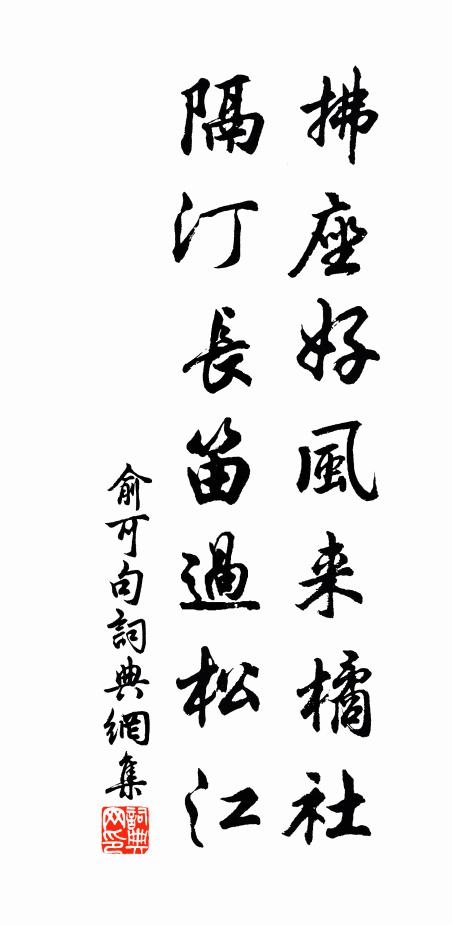 拂座好風来橘社
隔汀長笛過松江
俞可句詞典網集
詞典网印